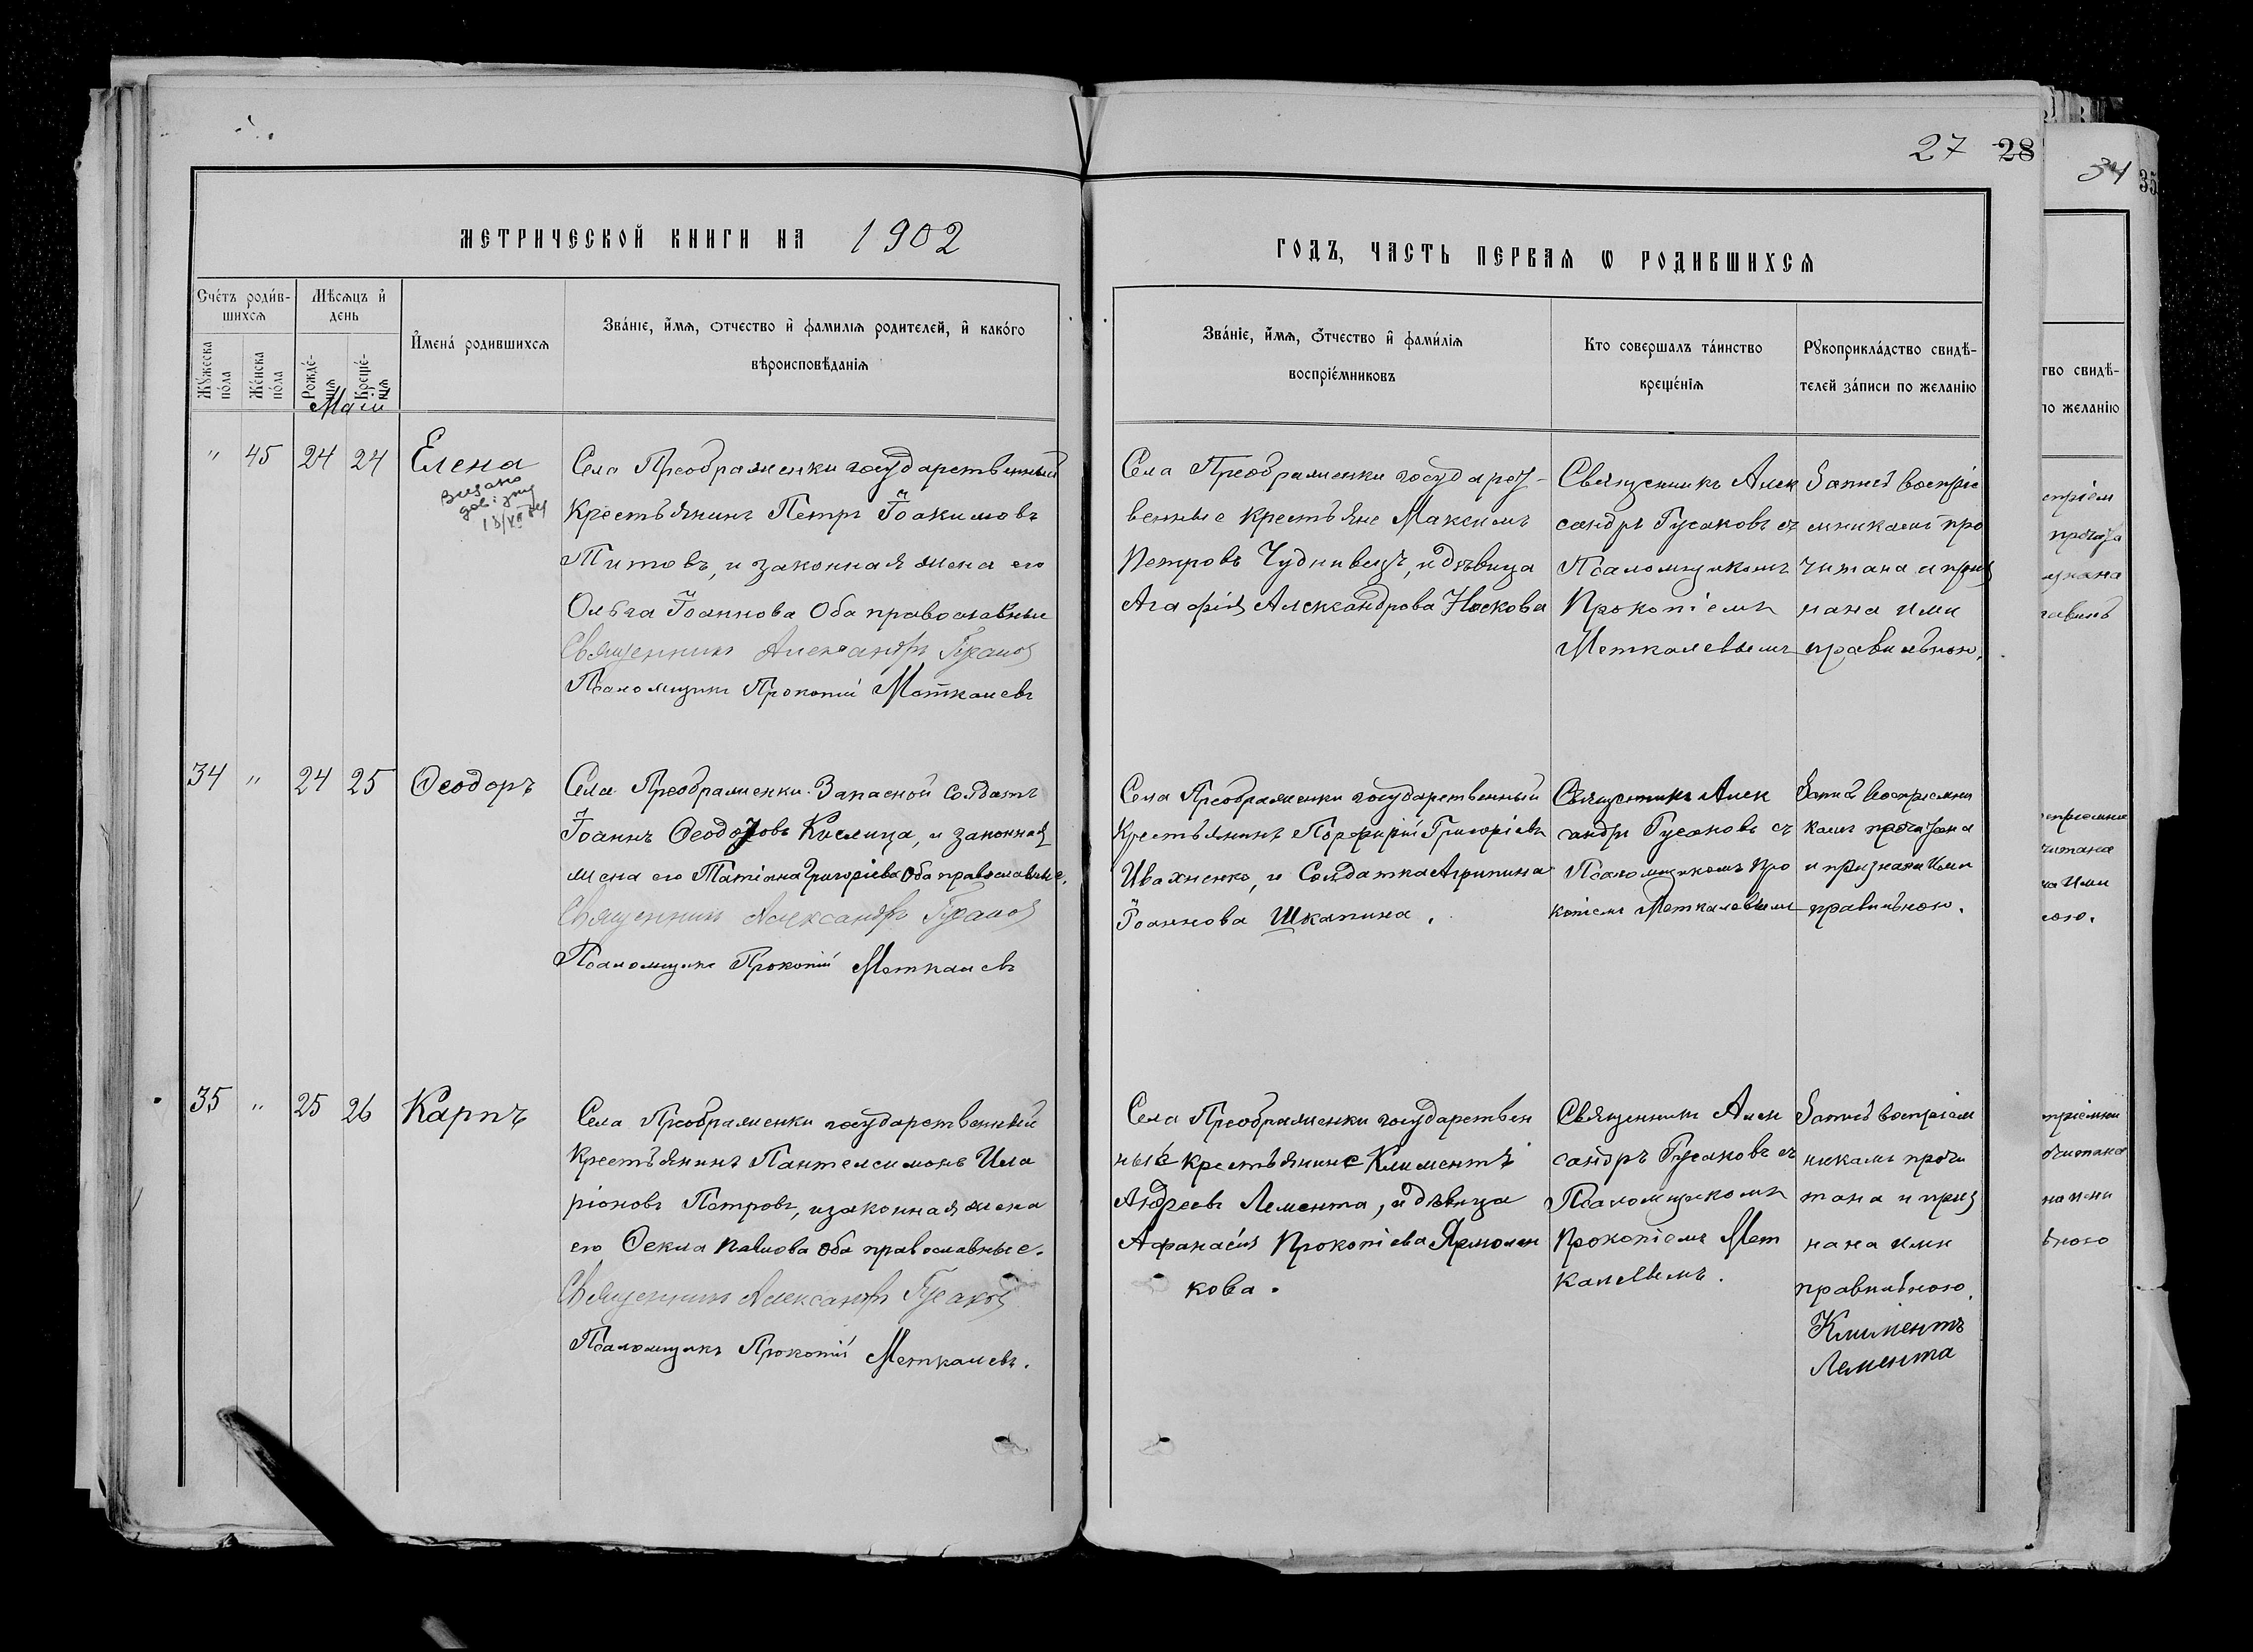 27 28
34 35
МЕТРИЧЕСКОЙ КНИГИ НА 1902
ГОДЪ, ЧАСТЬ ПЕРВАЯ Ѡ РОДИВШИХСЯ
Сче́тъ роди́в-
шихсѧ
Мѣсѧцъ и҆
день
И҆мена́ родившихсѧ
Зва́нїе, и҆́мѧ, ѻтчество и҆ фамилїѧ родителей, и҆ како́го
вѣроисповѣданїѧ
Мꙋжеска
по́ла
Же́нска
по́ла
Рожде́-
нїѧ
Креще́-
нїѧ
Маій
Зва́нїе, и҆́мѧ, ѻ҆́тчество и҆ фами́лїѧ
воспрїе́мниковъ
Кто совершалъ та́инство
креще́нїѧ
Рꙋкоприкла́дство свидѣ-
телей за́писи по желанїю
" 45 24 24 Елена
Видано
13/XI
Села Преображенки государственный
Крестьянинъ Петръ Іоакимовъ
Титовъ, и законная жена его
Ольга Іоаннова Оба православные
Священникъ Александръ Гусаковъ
Псаломщикъ Прокопій Меткалевъ
Села Преображенки государст-
венные крестьяне Максимъ
Петровъ Чуднивецъ, и дѣвица
Агафія Александрова Носкова
Священникъ Алек
сандръ Гусаковъ съ
Псаломщикомъ
Прокопіемъ
Меткалевымъ
Запись воспріе
мникамъ про
читана и приз
нана ими
правильною.
34 " 24 25 Ѳеодоръ
Села Преображенки Запасной Солдатъ
Іоаннъ Ѳеодоровъ Кислица, и законная
жена его Татіана Григоріева Оба православные.
Священникъ Александръ Гусаковъ
Псаломщикъ Прокопій Меткалевъ
Села Преображенки государственный
Крестьянинъ Порфирій Григоріевъ
Ивахненко, и Солдатка Агрипина
Іоаннова Шкапина.
Священникъ Алек
сандръ Гусаковъ съ
Псаломщикомъ Про
копіемъ Меткалевымъ
Запись Воспріемни
камъ прочитана
и признана Ими
правильною.
35 " 25 26 Карпъ
Села Преображенки государственный
Крестьянинъ Пантелеимонъ Ила
ріоновъ Петровъ, и законная жена
его Ѳекла Павлова Оба православные.
Священникъ Александръ Гусаковъ
Псаломщикъ Прокопій Меткалевъ.
Села Преображенки государствен
ные крестьянине Климентъ
Андреевъ Лемента, и дѣвица
Афанасія Прокопіева Ярмолен
кова.
Священникъ Алек
сандръ Гусаковъ съ
Псаломщикомъ
Прокопіемъ Мет
калевымъ.
Запись воспріем
никамъ прочи
тана и приз
нана ими
правильною.
Климентъ
Лемента
тво свидѣ-
по желанїю